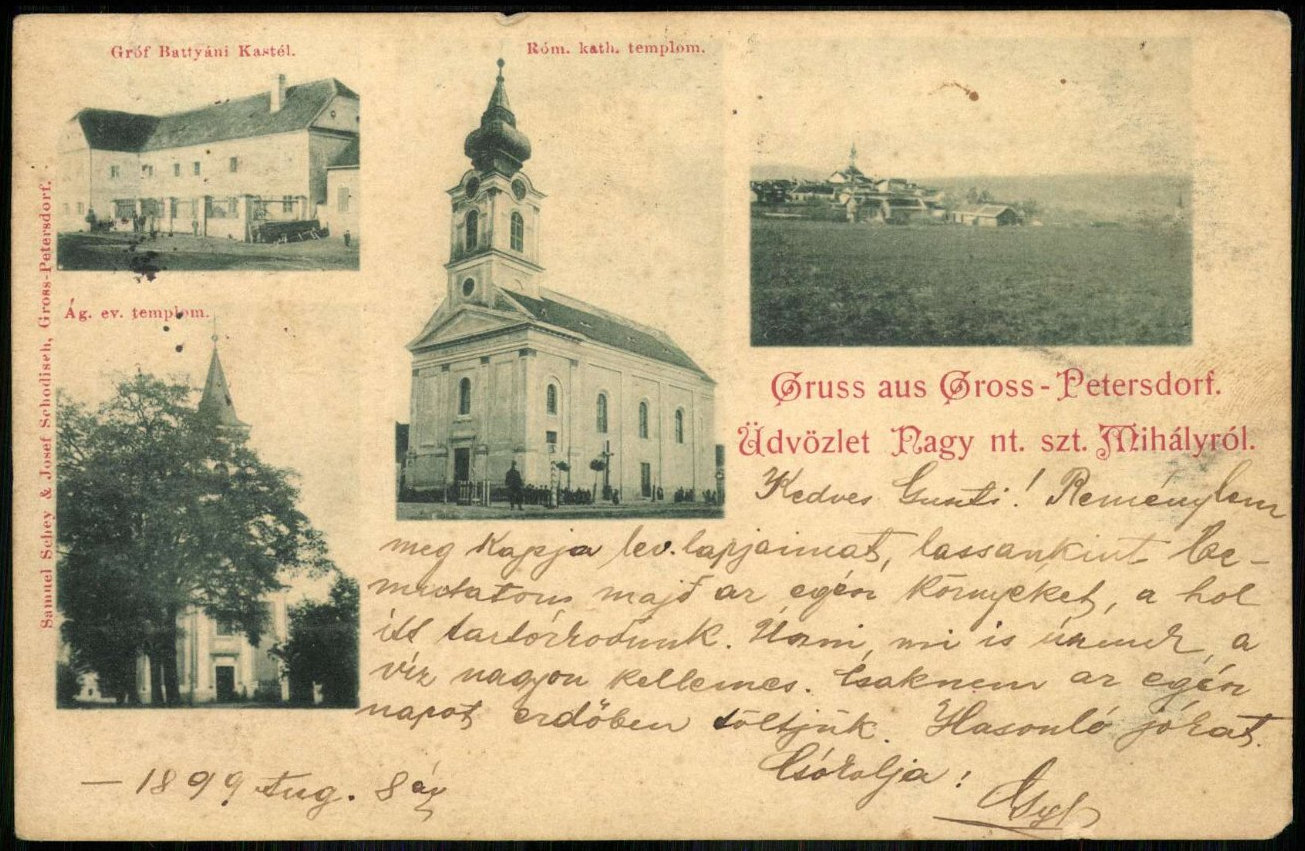 Gróf Battyáni Kastél.
Róm. kath. templom.
Ág. ev. templom.
Samuel Schey & Josef Schodisch, Gross-Petersdorf.
Gruss aus Gross-Petersdorf.
Üdvözlet Nagy nt. szt. Mihályról.
Kedves Guszti! Reménylem
meg kapja lev. lapjaimat, lassankint be-
mutatom majd az egész környéket, a hol
itt tartózkodunk. Uszni, mi is úszunk, a
víz nagyon kellemes. Csaknem az egész
napot erdőben töltjük. Hasonló jókat.
Csókolja!
– 1899 Aug. 8án